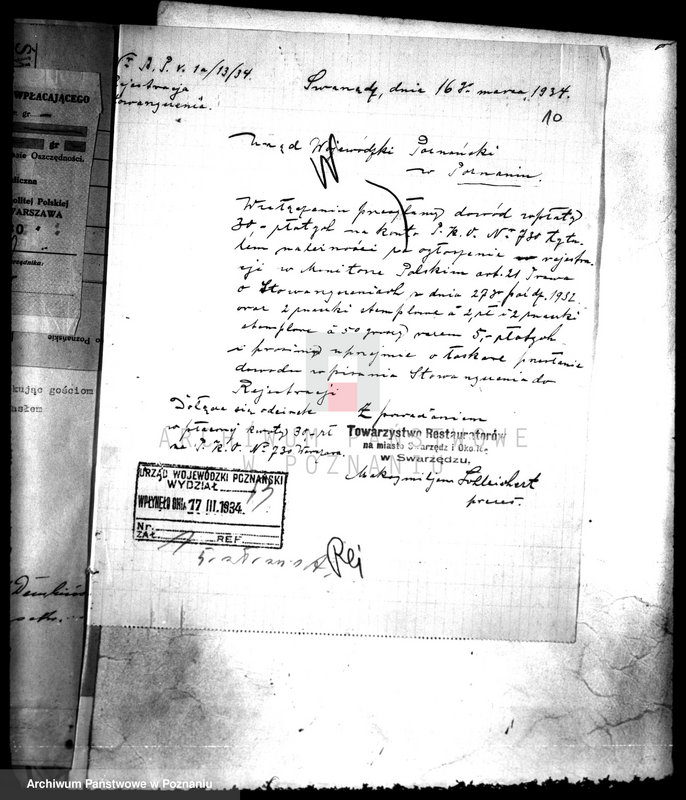 A. P. V. 1a/13/34.
Rejestracja
Stowarzyszenia.
Swarzędz, dnia 16go marca 1934.
10
Urząd Wojewódzki Poznański
w Poznaniu.
W załączeniu przesyłamy dowód zapłaty
30,- złotych na konto P. K. O. No 730 tytu-
łem należności za ogłoszenie w rejestra-
cji w Monitorze Polskim art. 21 Prawa
o Stowarzyszeniach z dnia 27go paźdz. 1932
oraz 2 znaczki stemplowe à 2 zł i 2 znaczki
stemplowe à 50 groszy razem 5,- złotych
i prosimy uprzejmie o łaskawe przesłanie
dowodu wpisania Stowarzyszenia do
Rejestracji
Dołącza się odcinek
wpłaconej kwoty 30,- zł
na P. K. O. No 730 Warszawa.
Z poważaniem
Towarzystwo Restauratorów
na miasto Swarzędz i Okolicę
w Swarzędzu,
Maksymiljan
prezes.
URZĄD WOJEWÓDZKI POZNAŃSKI
WYDZIAŁ
WPŁYNĘŁO DNIA 17 III. 1934
Nr.
ZAŁ. REF.
Rej
WPŁACAJĄCEGO
gr
gr
Oszczędności.
Polskiej
WARSZAWA
Poznańskie
gościom
ARCHIWUM PAŃSTWOWE
W POZNANIU
Archiwum Państwowe w Poznaniu